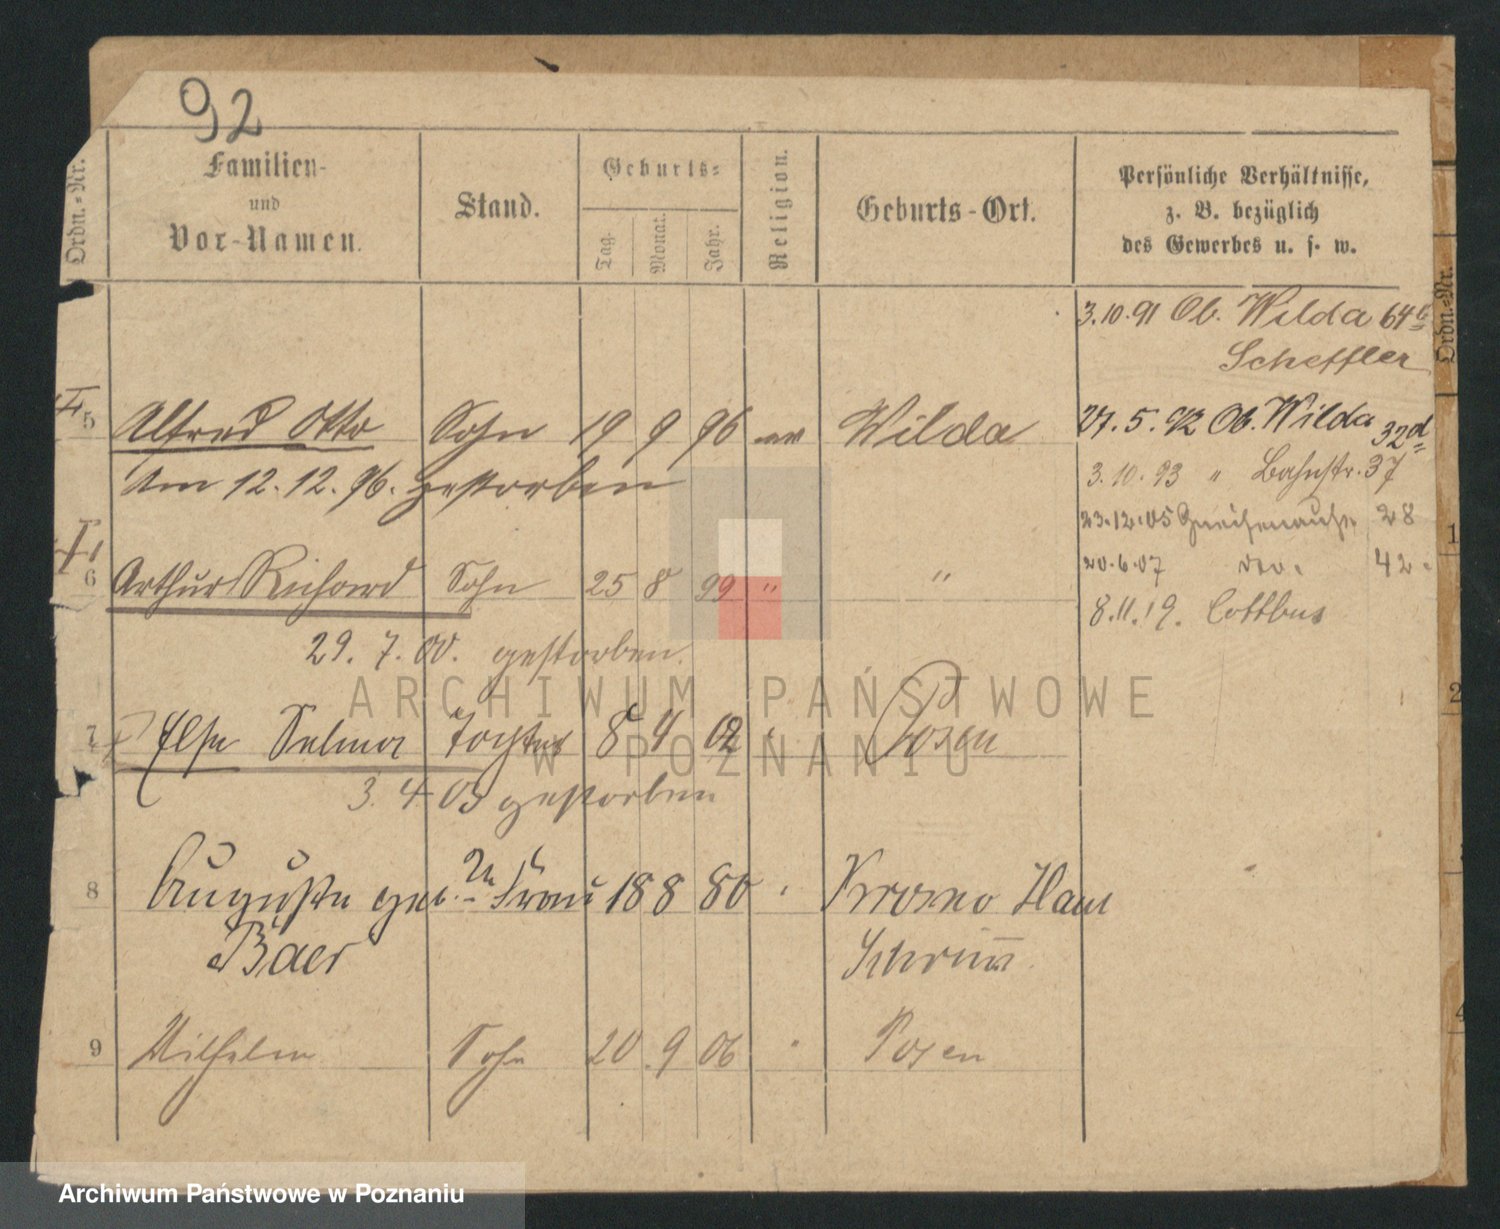 92
Ordn.-Nr.
Familien-
und
Vor-Namen.
Stand.
Geburts-
Tag.
Monat.
Jahr.
Religion.
Geburts-Ort.
Persönliche Verhältnisse,
z. B. bezüglich
des Gewerbes u. s. w.
Ordn.-Nr.
3.10.91 Ob. Wilda 64
Scheffler
5 Alfred Otto Sohn 19 9 96 ev Wilda
27. 5. 92 Ob. Wilda 32d
Am 12. 12. 96. gestorben
3. 10. 93 " Bahnstr. 37
23.12.05 Gneisenaustr 28
6 Arthur Richard Sohn 25 8 99 " "
20.6.07 do. 42
8.11.19. Cottbus
29. 7. 00. gestorben.
ARCHIWUM PAŃSTWOWE
W POZNANIU
7 Else Selma Tochter 8 4 02 " Posen
3. 4 03 gestorben
8 Auguste geb. Frau 18 8 80 " Krosno Hau
Baer Schrimm
9 Wilhelm Sohn 20 9 06 " Posen
1
2
4
Archiwum Państwowe w Poznaniu